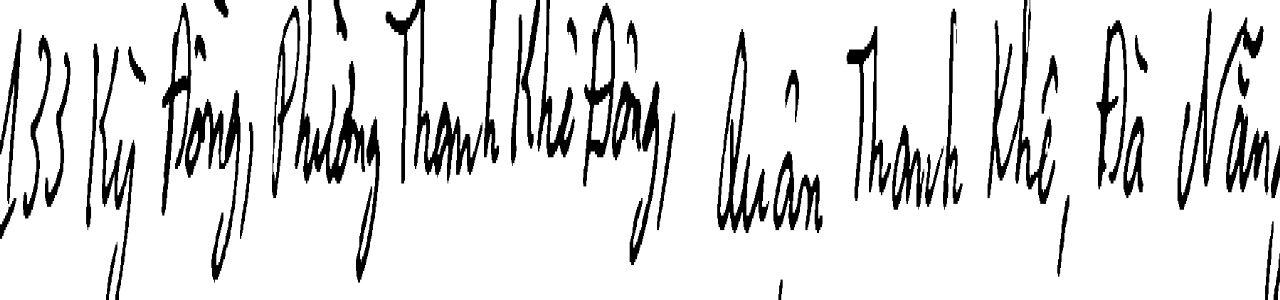 133 Kỳ Đồng, Phường Thanh Khê Đông, Quận Thanh Khê, Đà Nẵng